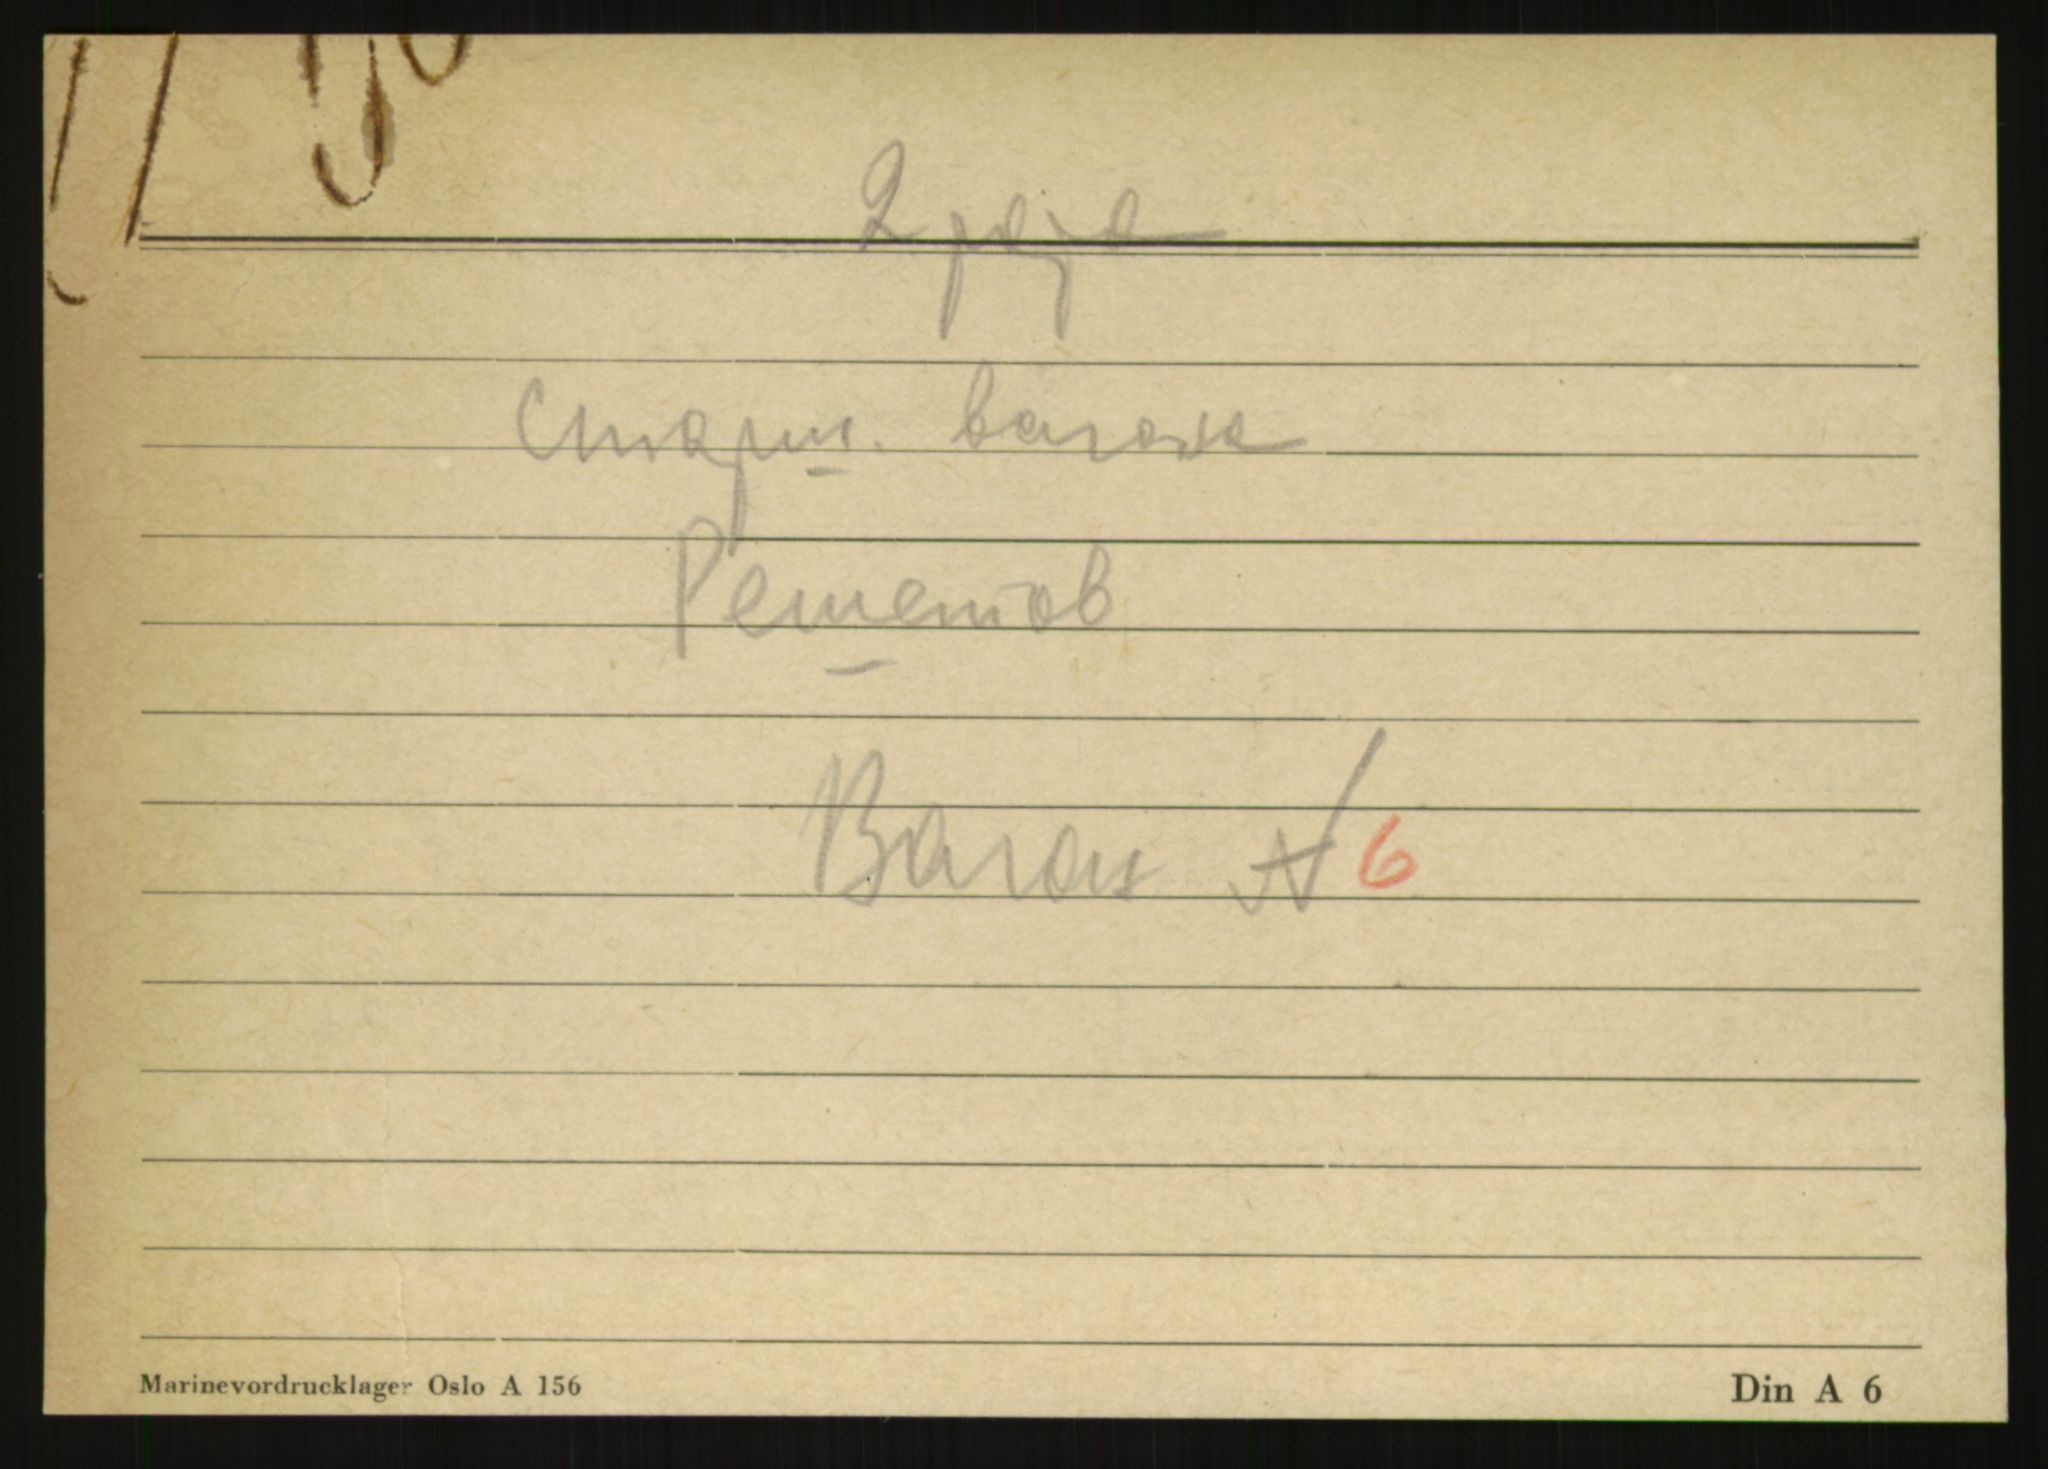 2 рота
Старш. вагона
Решетов
Вагон № 6
Marinevordrucklager Oslo A 156
Din A 6